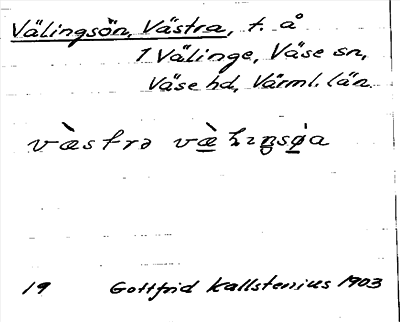 Välingsön, Västra, t. å
1 Välinge, Väse sn,
Väse hd, Värml. län
væ̀strə
19 Gottfrid Kallstenius 1903